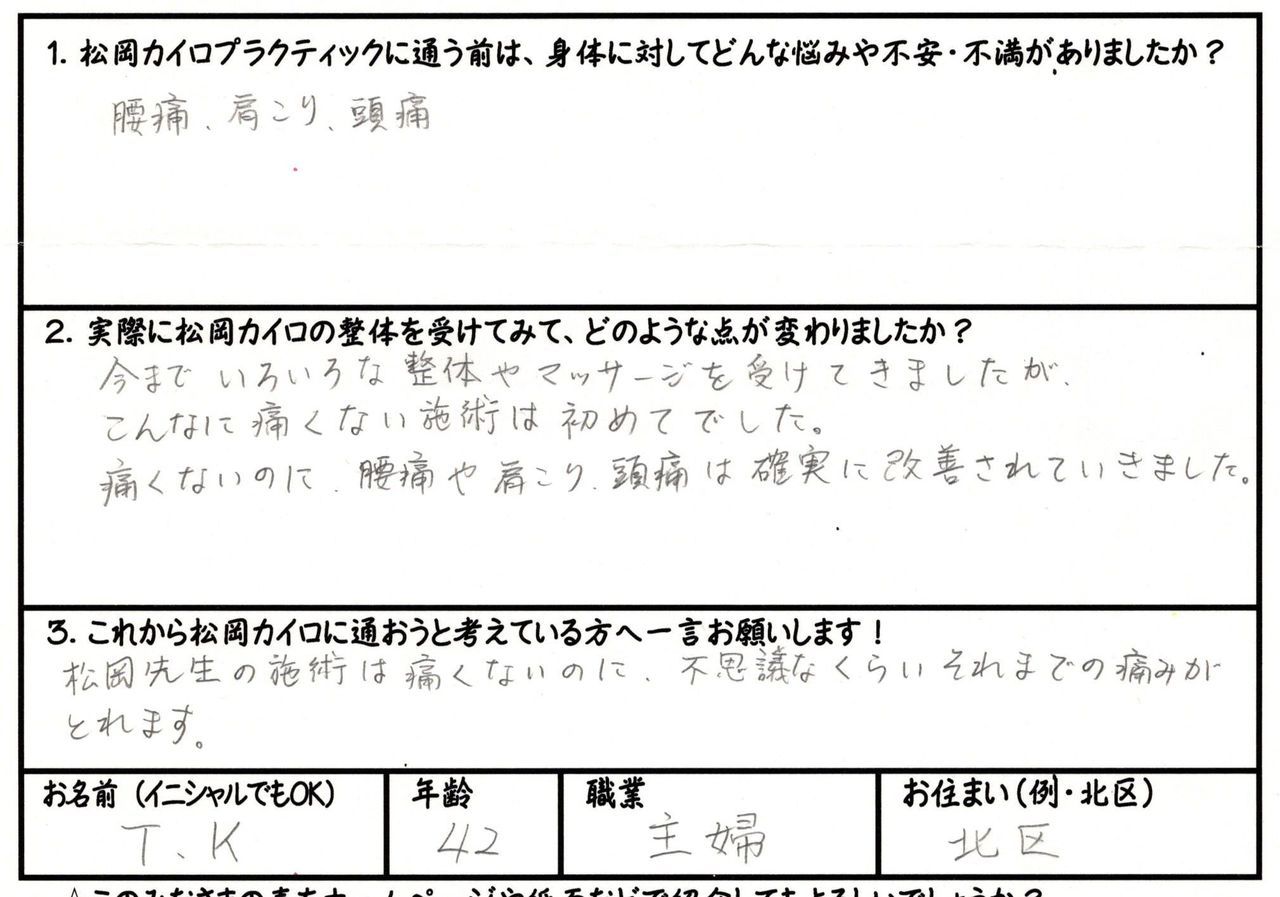 1. 松岡カイロプラクティックに通う前は、身体に対してどんな悩みや不安・不満がありましたか？
腰痛、肩こり、頭痛
2. 実際に松岡カイロの整体を受けてみて、どのような点が変わりましたか？
今までいろいろな整体やマッサージを受けてきましたが、
こんなに痛くない施術は初めてでした。
痛くないのに、腰痛や肩こり、頭痛は確実に改善されていきました。
3. これから松岡カイロに通おうと考えている方へ一言お願いします！
松岡先生の施術は痛くないのに、不思議なくらいそれまでの痛みが
とれます。
お名前（イニシャルでもOK） 年齢 職業 お住まい（例・北区）
T、K 42 主婦 北区